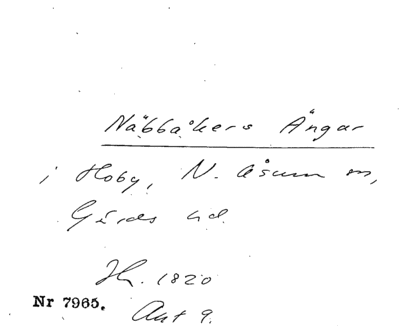 Näbbåkers Ängar
i Hoby, N. Åsum sn,
Gärds hd.
Jb. 1820
Nr 7965.
Akt 9.